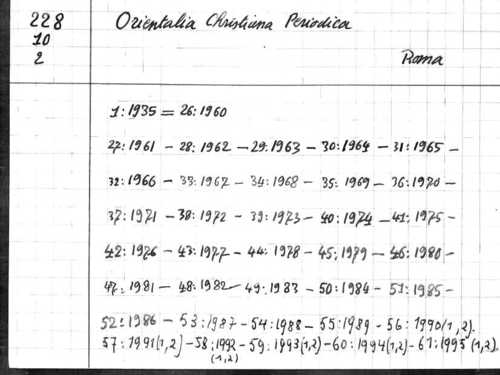 228
10
2
Orientalia Christiana Periodica
Roma
1:1935 = 26:1960
27:1961 – 28:1962 – 29:1963 – 30:1964 – 31:1965 –
32:1966 – 33:1967 – 34:1968 – 35:1969 – 36:1970 –
37:1971 – 38:1972 – 39:1973 – 40:1974 – 41:1975 –
42:1976 – 43:1977 – 44:1978 – 45:1979 – 46:1980 –
47:1981 – 48:1982 – 49:1983 – 50:1984 – 51:1985 –
52:1986 – 53:1987 – 54:1988 – 55:1989 – 56:1990 (1,2).
57:1991 (1,2) – 58:1992 – 59:1993 (1,2) – 60:1994 (1,2) – 61:1995 (1,2).
(1,2)